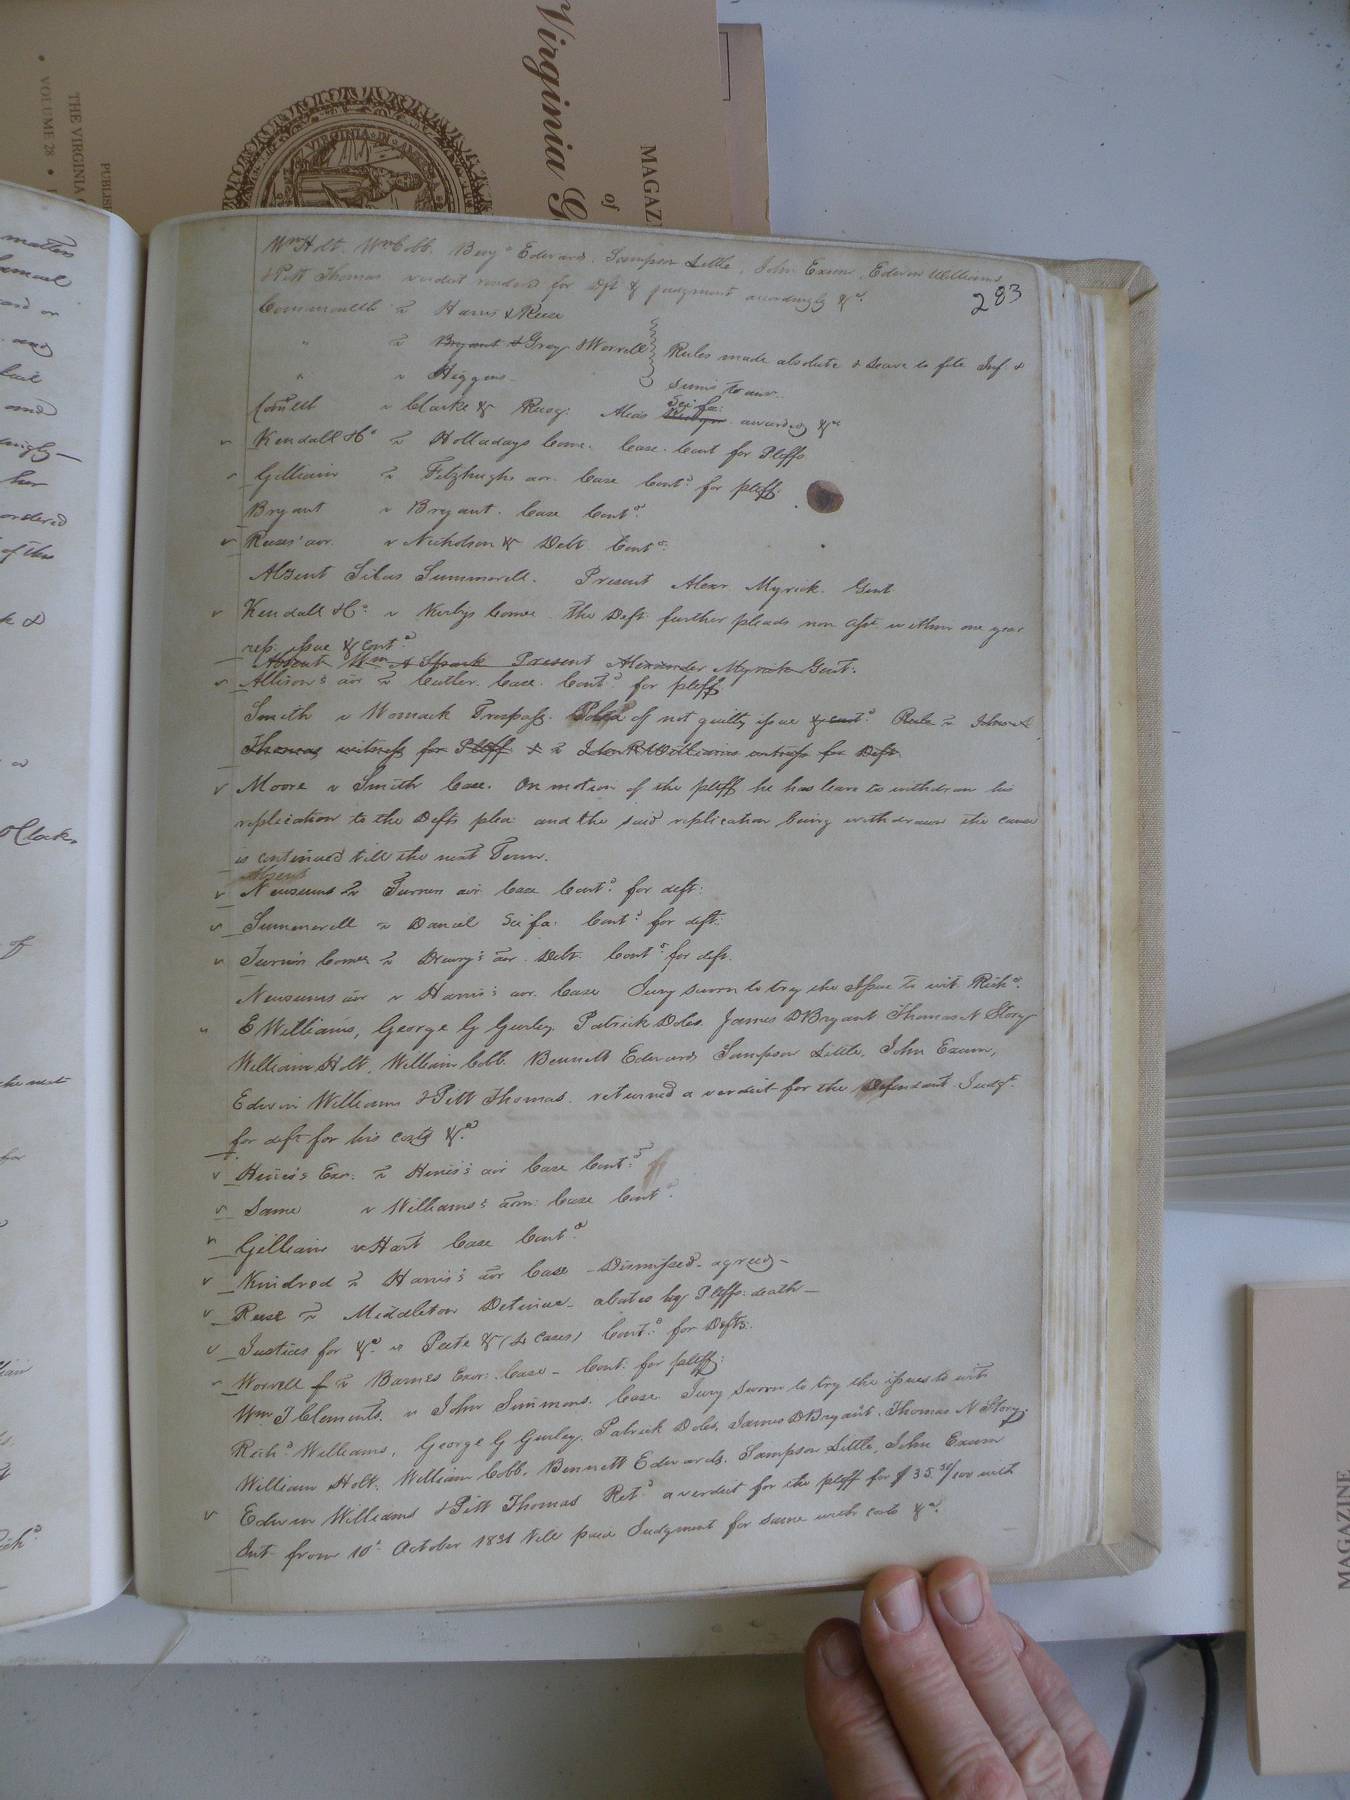 Virginia G
MAGAZ
of
VIRGINIA IN
THE VIRGINIA
VOLUME 28
PUBLIS
283
Wm Holt, Wm Cobb, Benja Edwards, Sampson Little, John Exum, Edwin Williams
& Pitt Thomas verdict rendered for Dft & judgment accordingly &c.
Commonwlth v Harris & Reese
" v Bryant & Gray & Worrell Rules made absolute & leave to file Inf. &
" v Higgens sums to ansr.
Comwlth v Clarke &c Recog: Alias Sci fa: awarded &c
Kendall & Co v Holladays Comee. Case. Cont for Pltffs
Gilliam v Fitzhughs aor. Case Contd for pltff.
Bryant v Bryant. Case Contd
Reeses' aor. v Nicholson &c Debt Contd.
Absent Silas Summerell. Present Alexr. Myrick. Gent
Kendall & Co v Kirbys Comee The Deft further pleads non asst within one year
rep: issue & contd
Absent Wm A Spark Present Alexander Myrick Gent.
Allison's aor v Cutler. Case. Contd for pltff
Smith v Womack Trespass. Plea of not guilty issue & contd Rule v John
Thomas witness for Pltff & v John R Williams witness for Deft.
Moore v Smith Case. On motion of the pltff he has leave to withdraw his
replication to the Defts plea and the said replication being withdrawn the cause
is continued till the next Term.
Absent
Newsums v Turner aor Case Contd for deft:
Summerell v Daniel Sci fa: Contd for deft:
Turner Comee v Drewry's aor. Debt Contd for deft.
Newsums aor v Harris's aor. Case Jury sworn to try the Issue to wit Richd.
E Williams, George G Gurley, Patrick Doles, James D Bryant Thomas N Story
William Holt, William Cobb. Bennett Edwards Sampson Little, John Exum,
Edwin Williams & Pitt Thomas. returned a verdict for the Defendant Judgt.
for deft for his costs &c
Hines's Exor. v Hines's aor Case Contd
Same v Williams's adm: Case Contd.
Gilliam v Hart Case Contd
Kindred v Harris's aor Case Dismissed agreed
Reese v Middleton Detinue abates by Pltffs death
Justices for &c. v Peete &c (4 cases) Contd for Defts:
Worrell v Barnes Exor: Case Cont. for pltff:
Wm J Clements v John Simmons. Case Jury sworn to try the issues to wit
Richd Williams, George G Gurley, Patrick Doles, James D Bryant, Thomas N Story,
William Holt, William Cobb, Bennett Edwards, Sampson Little, John Exum
Edwin Williams & Pitt Thomas Retd a verdict for the pltff for $35. /100 with
Int from 10th October 1831 till paid Judgment for same with costs &c.
matter
Samuel
and or
and
bail
and
her
ordered
of this
O'Clock.
of
the next
for
MAGAZINE